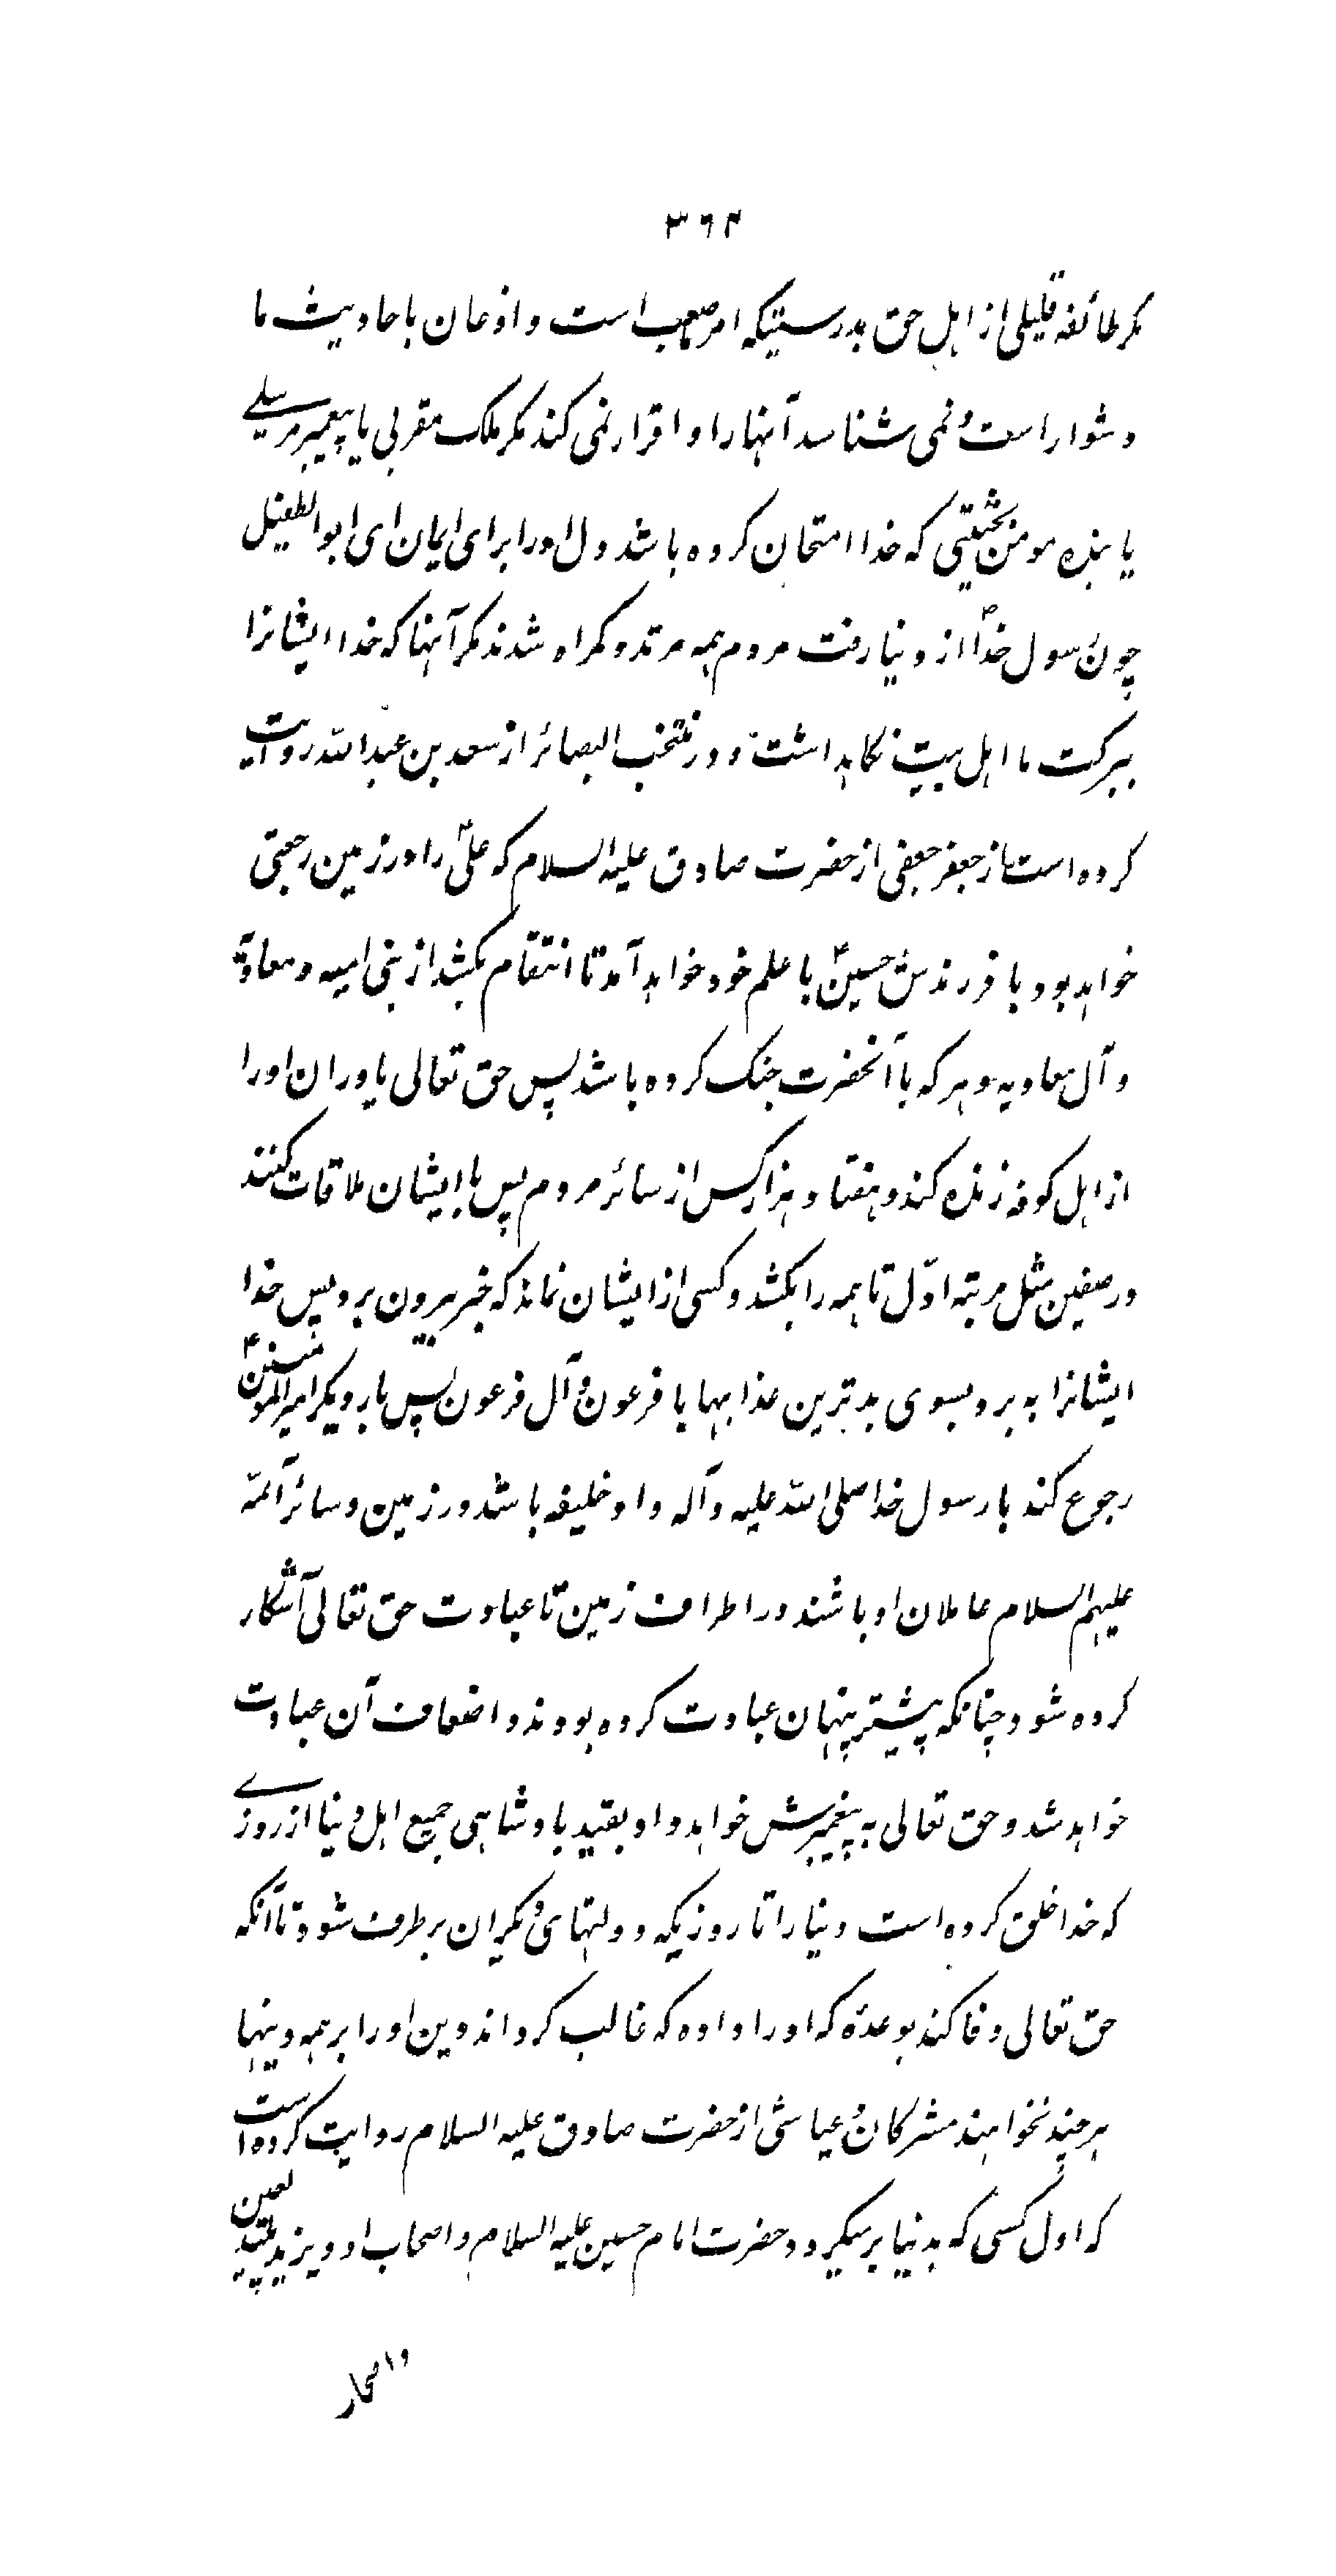 ۳۶۴
مکر طائفه قلیلی از اهل حق بدرستیکه امر صعب است و اذعان باحادیث ما
دشوار است و نمی شناسد آنها را و اقرار نمی کند مکر ملک مقربی یا پیغمبر مرسلے
یا بنده مومن نجیبی که خدا امتحان کرده باشد دل او را برای ایمان ای ابوالطفیل
چون رسول خداؐ از دنیا رفت مردم همه مرتد و کمراه شدند مکر آنها که خدا ایشانرا
ببرکت ما اهل بیت نکاهداشت و در منتخب البصائر از سعد بن عبدالله روایت
کرده است از جعفر جعفی از حضرت صادق علیه السلام که علیؑ را در زمین رجعتی
خواهد بود با فرزندش حسینؑ با علم خود خواهد آمد تا انتقام بکشد از بنی امیه و معاویه
و آل معاویه و هر که با آنحضرت جنک کرده باشد پس حق تعالی یاوران او را
از اهل کوفه زنده کند و هفتاد هزار کس از سائر مردم پس با ایشان ملاقات کنند
در صفین مثل مرتبه اوّل تا همه را بکشد و کسی از ایشان نماند که خبر بیرون برد پس خدا
ایشانرا به برد بسوی بدترین عذابها با فرعون و آل فرعون پس بار دیکر امیرالمؤمنینؑ
رجوع کند با رسول خدا صلی الله علیه و آله و او خلیفه باشد در زمین و سائر آئمّه
علیهم السلام عاملان او باشند در اطراف زمین تا عبادت حق تعالی آشکار
کرده شود چنانکه پیشتر پنهان عبادت کرده بودند و اضعاف آن عبادت
خواهد شد و حق تعالی به پیغمبرش خواهد داد بقید بادشاهی جمیع اهل دنیا از روزے
که خدا خلق کرده است دنیا را تا روزیکه دولتهای دیکران برطرف شود تا آنکه
حق تعالی وفا کند بوعدهٔ که او را داده که غالب کرداند دین او را بر همه دینها
هرچند نخواهند مشرکان و عیاشی از حضرت صادق علیه السلام روایت کرده است
که اول کسی که بدنیا برمیکردد حضرت امام حسین علیه السلام و اصحاب او و یزید پلید لعین
و اصحاب